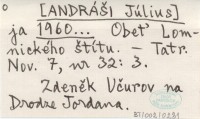 [ANDRÁŠI Július]
ja 1960... Obeť Lom-
nického štítu. - Tatr.
Nov. 7, nr 32: 3.
Zdeněk Včurov na
Drodze Jordana.
B7/002/0281